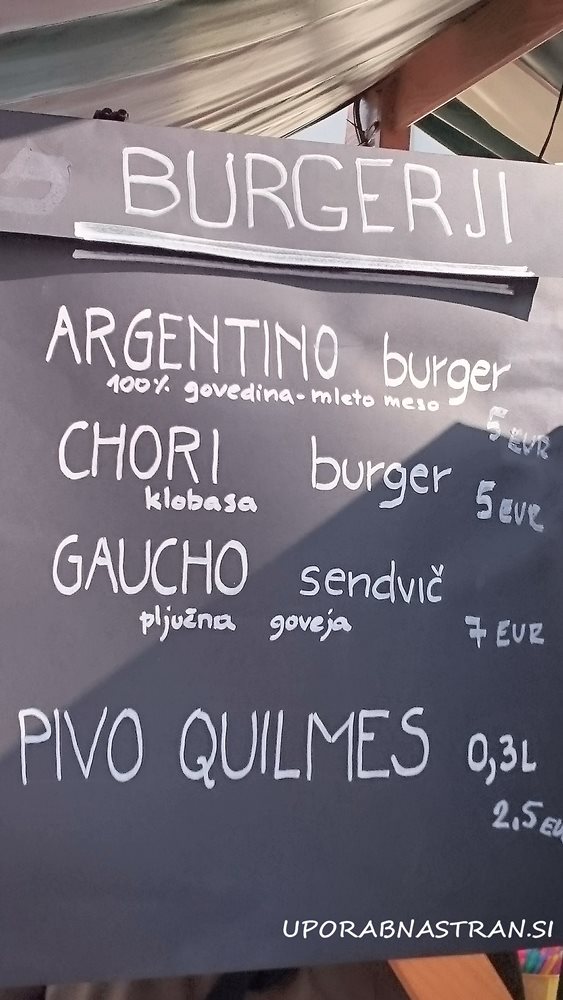 BURGERJI
ARGENTINO burger
100% govedina - mleto meso
5 EUR
CHORI burger
klobasa
5 EUR
GAUCHO sendvič
pljučna goveja
7 EUR
PIVO QUILMES 0,3L
2,5 EU
UPORABNASTRAN.SI